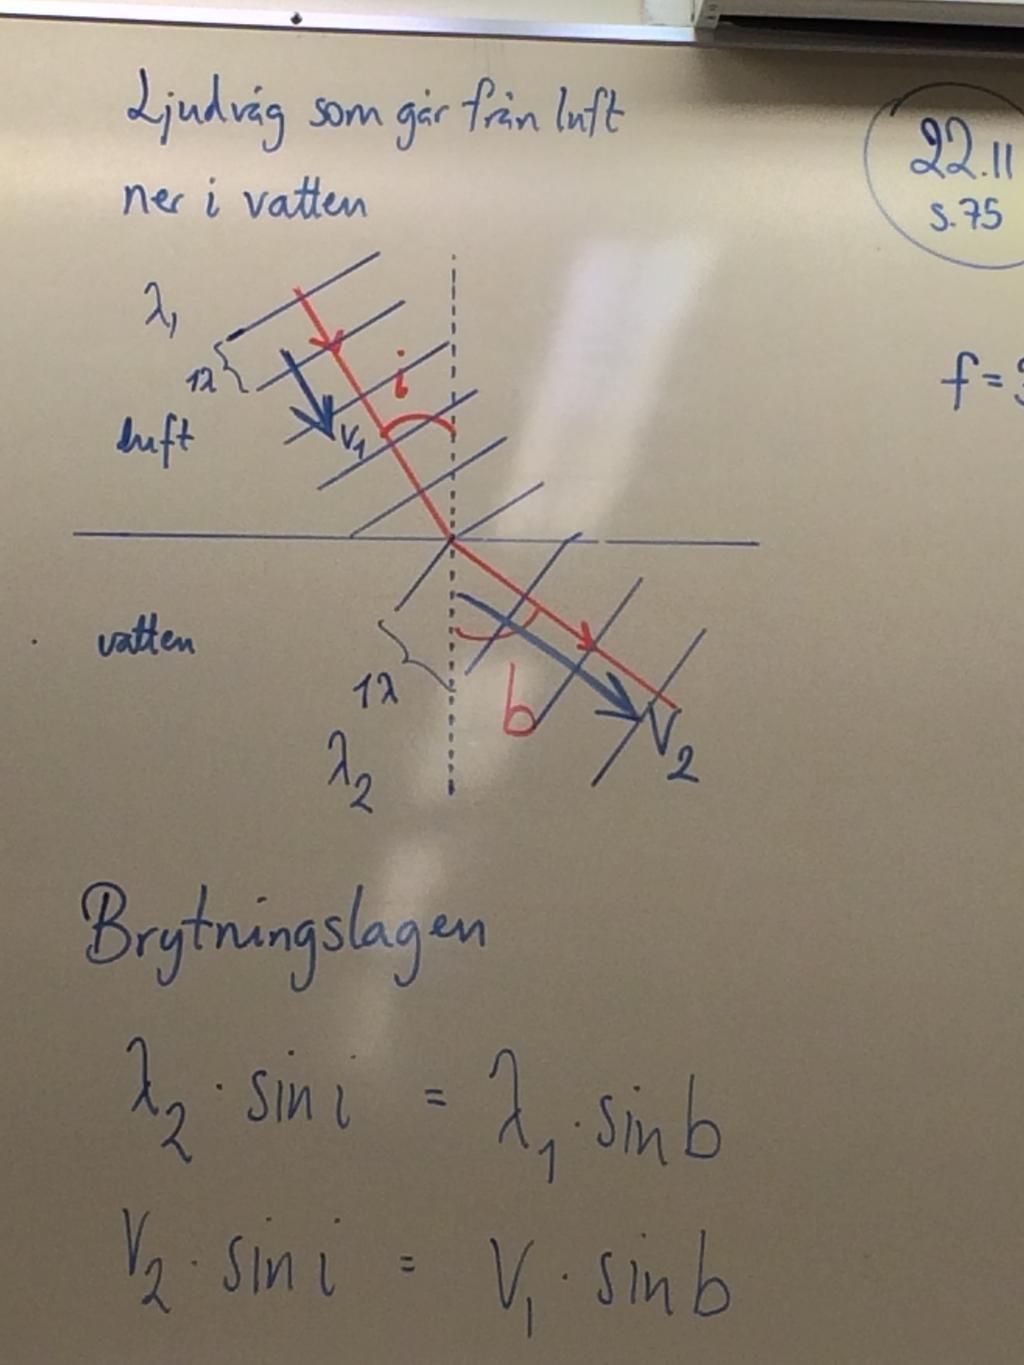 Ljudvåg som går från luft
ner i vatten
22.11
s.75
λ₁
1λ
i
v₁
luft
f=
vatten
1λ
b
V₂
λ₂
Brytningslagen
λ₂ · sin i = λ₁ · sin b
V₂ · sin i = V₁ · sin b